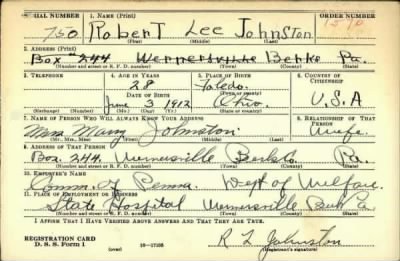 SERIAL NUMBER 1. NAME (Print) ORDER NUMBER
750 Robert Lee Johnston 1590
(First) (Middle) (Last)
2. ADDRESS (Print)
Box #244 Wernersville Berks Pa.
(Number and street or R. F. D. number) (Town) (County) (State)
3. TELEPHONE 4. AGE IN YEARS 5. PLACE OF BIRTH 6. COUNTRY OF CITIZENSHIP
28 Toledo
DATE OF BIRTH (Town or county)
June 3 1912 Ohio. U.S.A
(Exchange) (Number) (Mo.) (Day) (Yr.) (State or country)
7. NAME OF PERSON WHO WILL ALWAYS KNOW YOUR ADDRESS 8. RELATIONSHIP OF THAT PERSON
Mrs Mary Johnston Wife.
(Mr., Mrs., Miss) (First) (Middle) (Last)
9. ADDRESS OF THAT PERSON
Box. 244. Wernersville Berks Co Pa.
(Number and street or R. F. D. number) (Town) (County) (State)
10. EMPLOYER'S NAME
Comm. of Penna. Dept of Welfare
11. PLACE OF EMPLOYMENT OR BUSINESS
State Hospital Wernersville Berks Pa.
(Number and street or R. F. D. number) (Town) (County) (State)
I AFFIRM THAT I HAVE VERIFIED ABOVE ANSWERS AND THAT THEY ARE TRUE.
R L Johnston
REGISTRATION CARD
D. S. S. Form 1 (Registrant's signature)